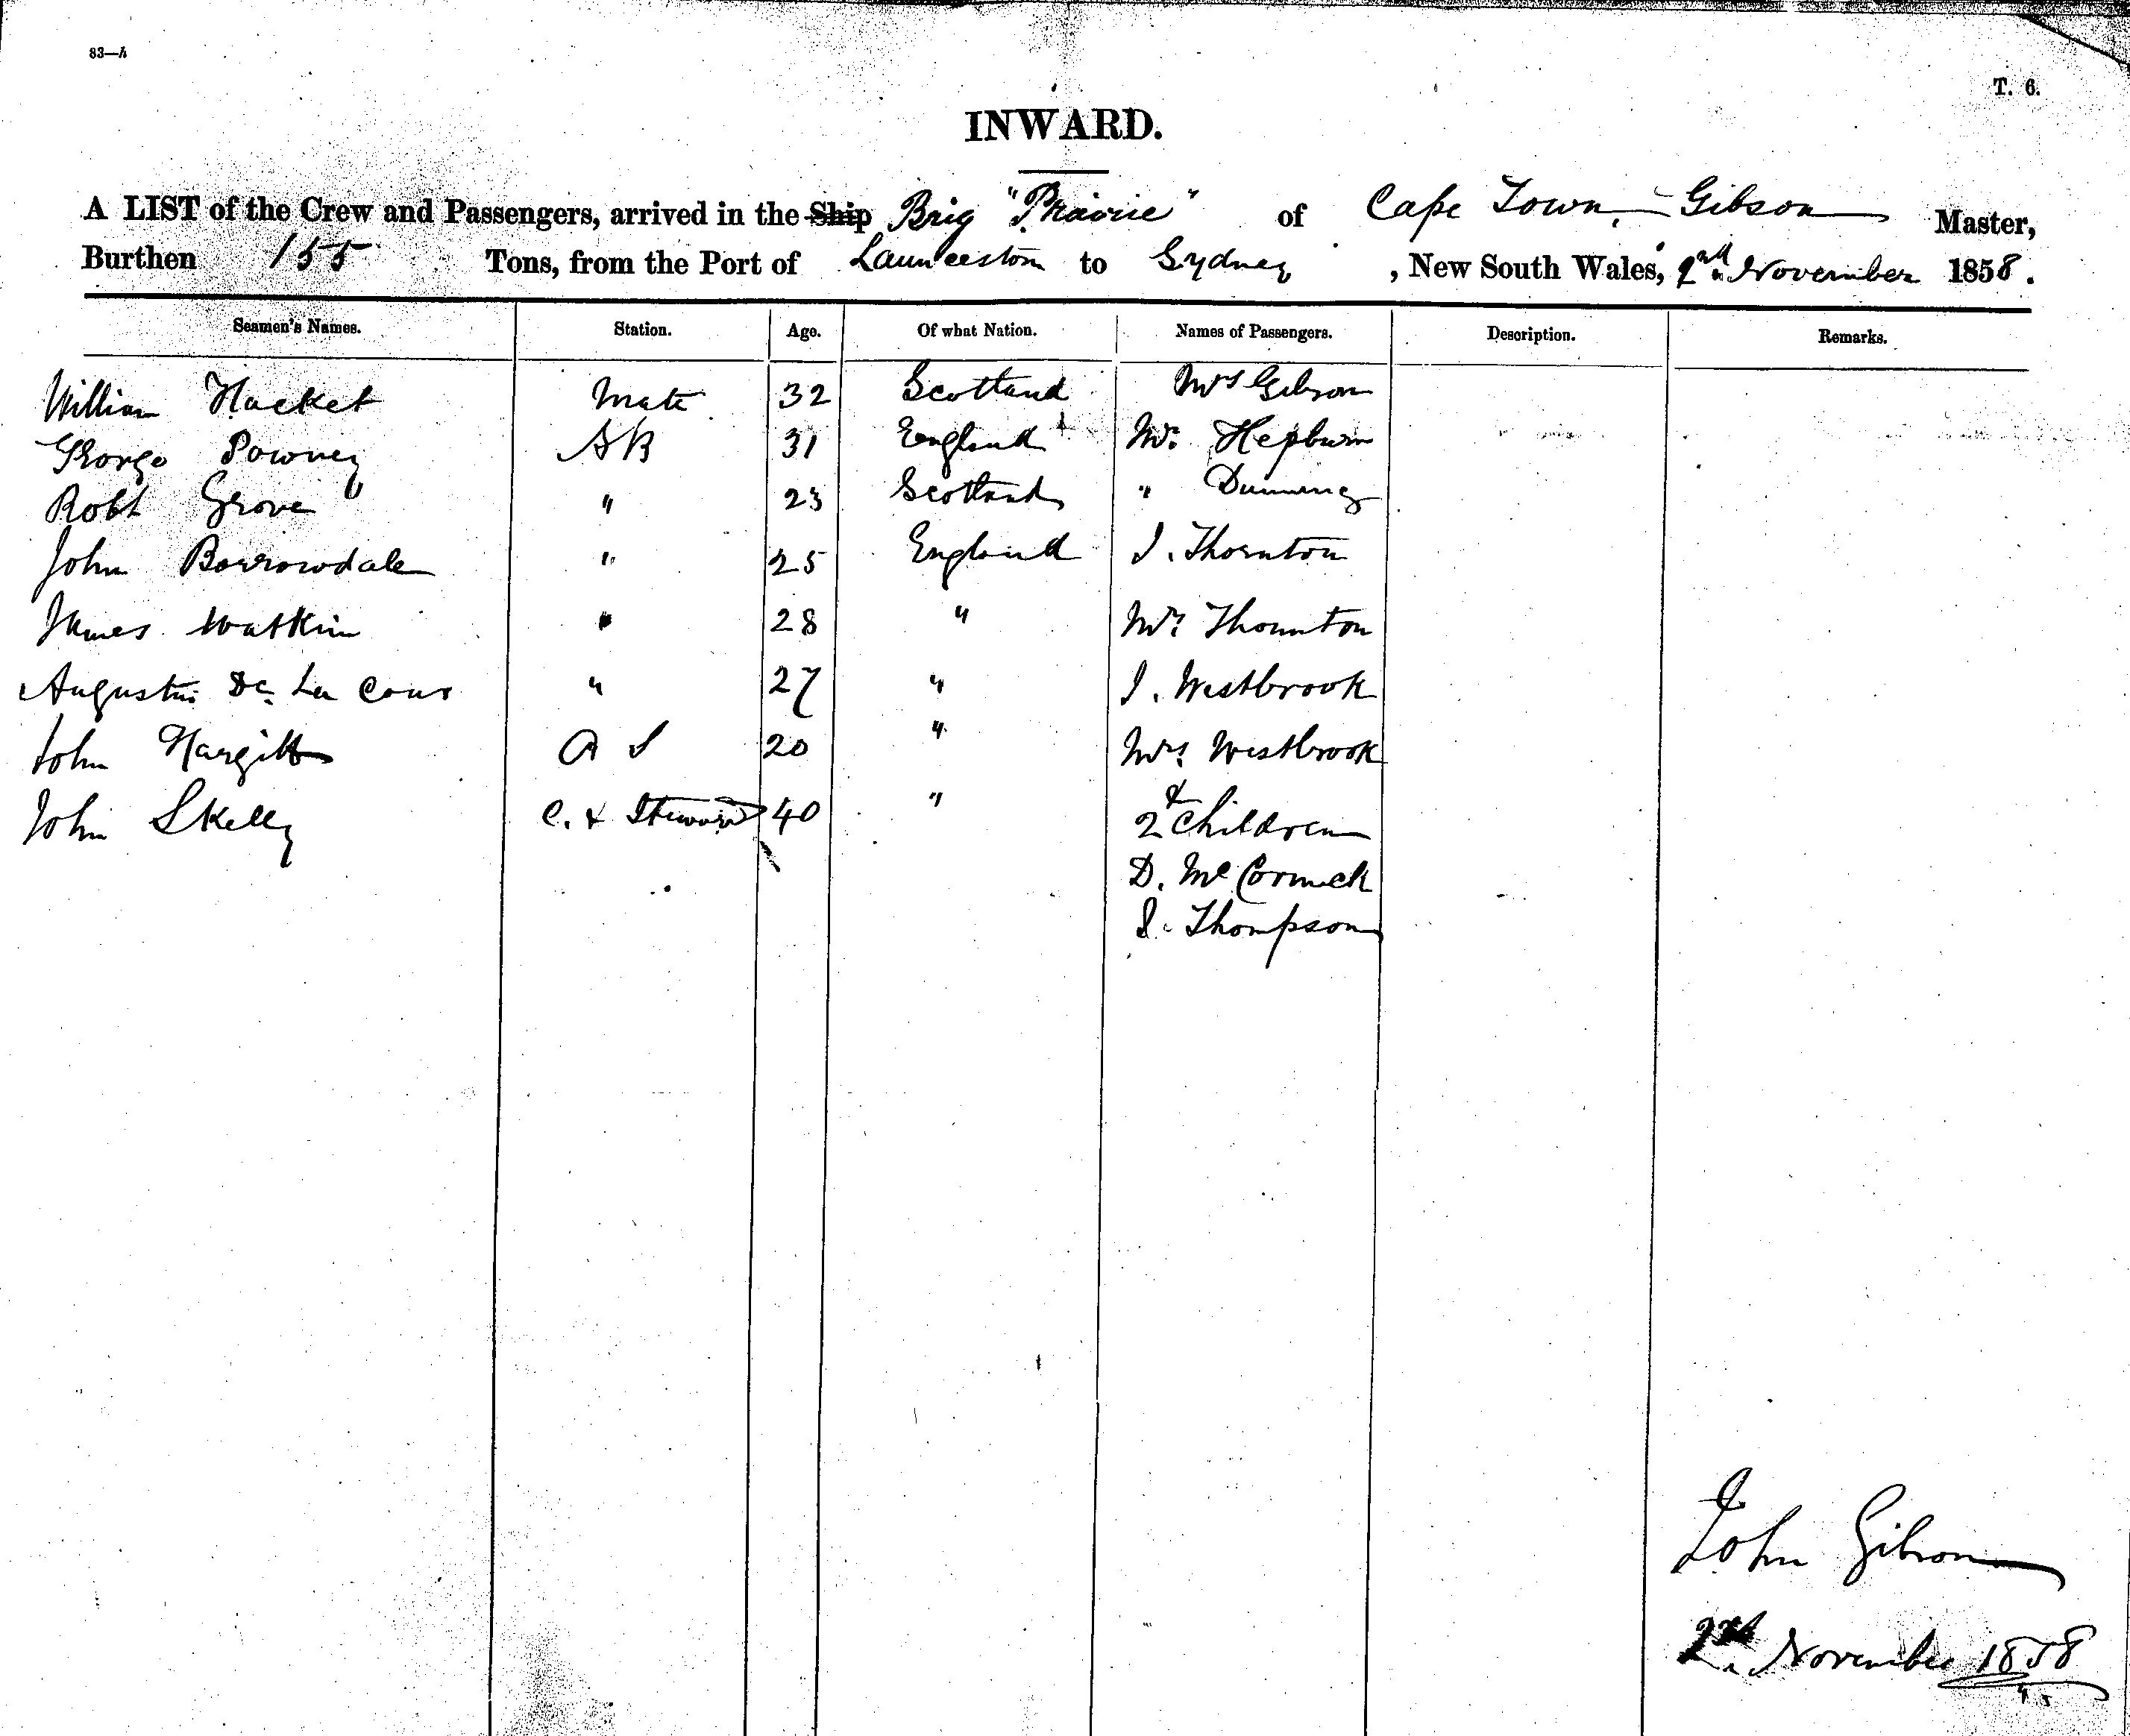 83—h
T. 6.
INWARD.
A LIST of the Crew and Passengers, arrived in the Ship Brig "Prairie" of Cape Town, Gibson Master,
Burthen 155 Tons, from the Port of Launceston to Sydney, New South Wales, 2nd November 1858.
Seamen's Names. Station. Age. Of what Nation. Names of Passengers. Description. Remarks.
William Hacket Mate 32 Scotland Mrs Gibson
George Powney AB 31 England Mr. Hepburn
Robt Grove " 23 Scotland " Dunning
John Borrowdale " 25 England J. Thornton
James Watkin " 28 " Mrs Thornton
Augustus De La Cour " 27 " J. Westbrook
John Hargitt O S 20 " Mrs Westbrook
John Skelly C. & Steward 40 " &
2 Children
D. McCormick
J. Thompson
John Gibson
2nd November 1858